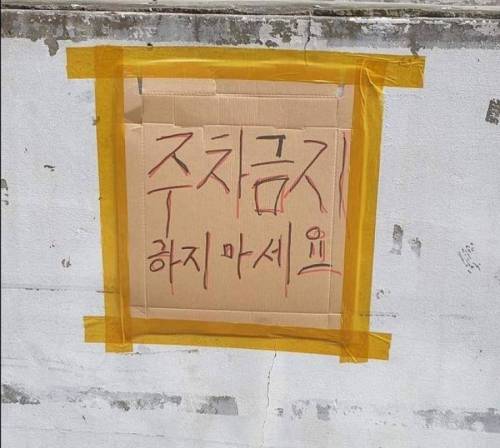 주차금지
하지마세요